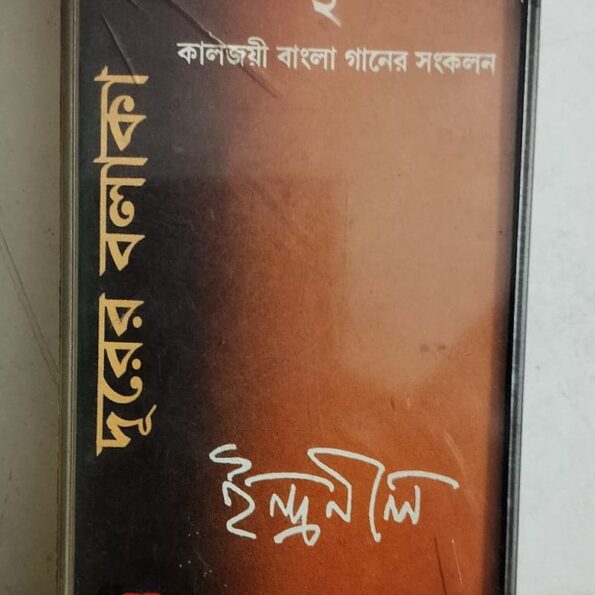 ২
কালজয়ী বাংলা গানের সংকলন
দূরের বলাকা
ইন্দ্রনীল